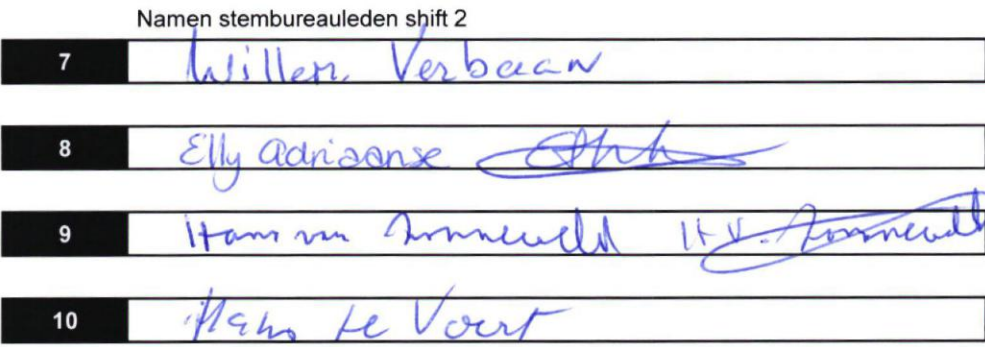 Namen stembureauleden shift 2
7 Willem Verbaan
8 Elly Adriaanse
9 Hans van Zonneveld H.V. Zonneveld
10 Hans te Voert